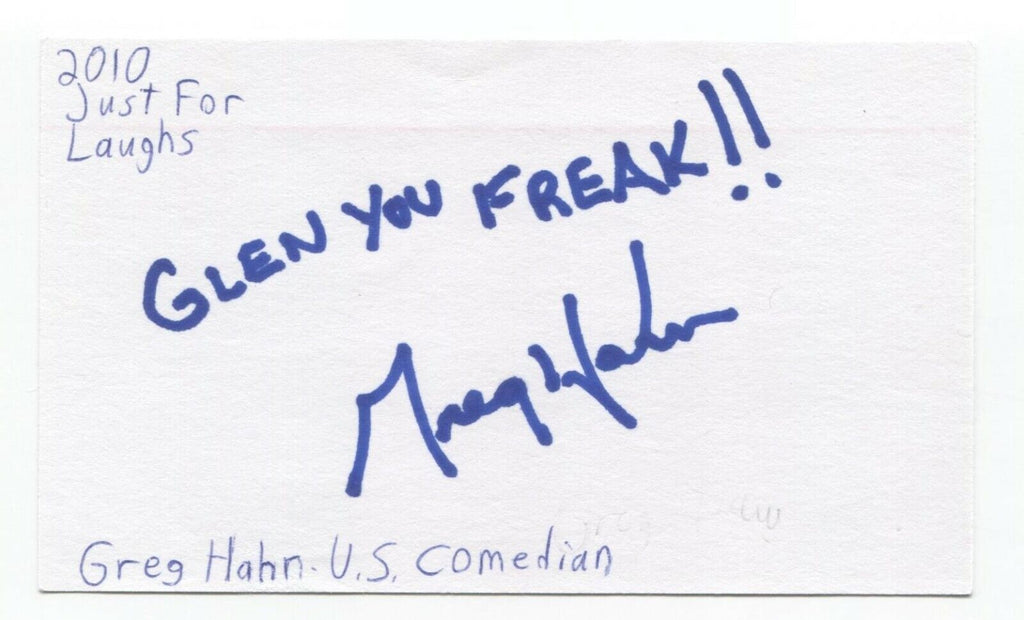 2010
Just For
Laughs
GLEN YOU FREAK!!
Greg Hahn
Greg Hahn. U.S. Comedian